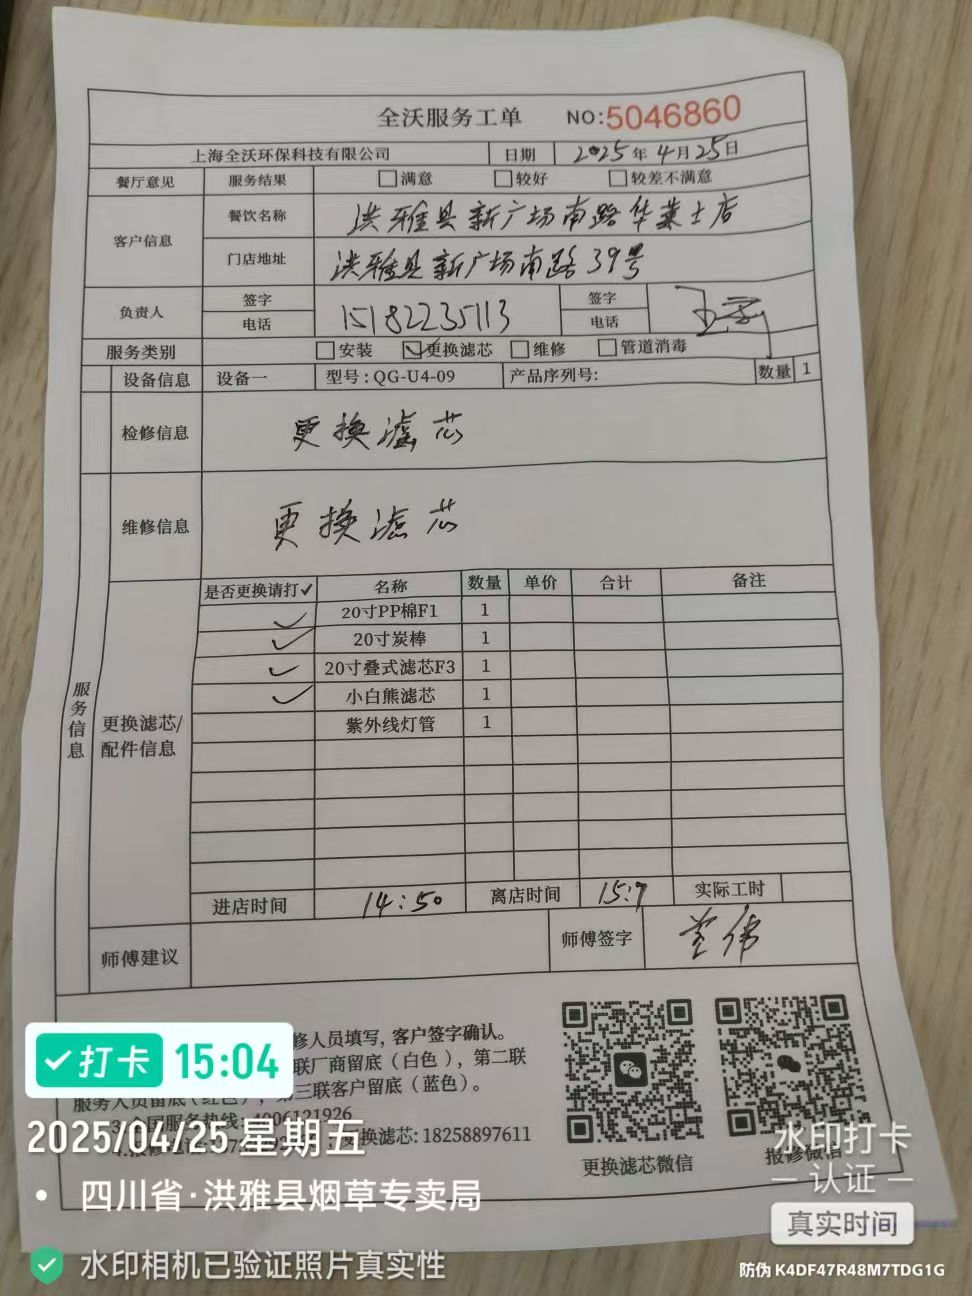 全沃服务工单 NO:5046860
上海全沃环保科技有限公司 日期 2025年4月25日
餐厅意见 服务结果 □满意 □较好 □较差不满意
客户信息 餐饮名称 洪雅县新广场南路华莱士店
门店地址 洪雅县新广场南路39号
负责人 签字 电话 15182235113 签字 电话
服务类别 □安装 ☑更换滤芯 □维修 □管道消毒
设备信息 设备一 型号:QG-U4-09 产品序列号: 数量 1
检修信息 更换滤芯
维修信息 更换滤芯
服务信息
更换滤芯/配件信息
是否更换请打✓ 名称 数量 单价 合计 备注
✓ 20寸PP棉F1 1
✓ 20寸炭棒 1
✓ 20寸叠式滤芯F3 1
✓ 小白熊滤芯 1
紫外线灯管 1
进店时间 14:50 离店时间 15:7 实际工时
师傅建议 师傅签字
修人员填写, 客户签字确认。
联厂商留底（白色），第二联
服务人员留底（红色），第三联客户留底（蓝色）。
国服务热线:4006121926
更换滤芯:18258897611
更换滤芯微信 报修微信
打卡 15:04
2025/04/25 星期五
四川省·洪雅县烟草专卖局
水印相机已验证照片真实性
水印打卡
认证
真实时间
防伪 K4DF47R48M7TDG1G